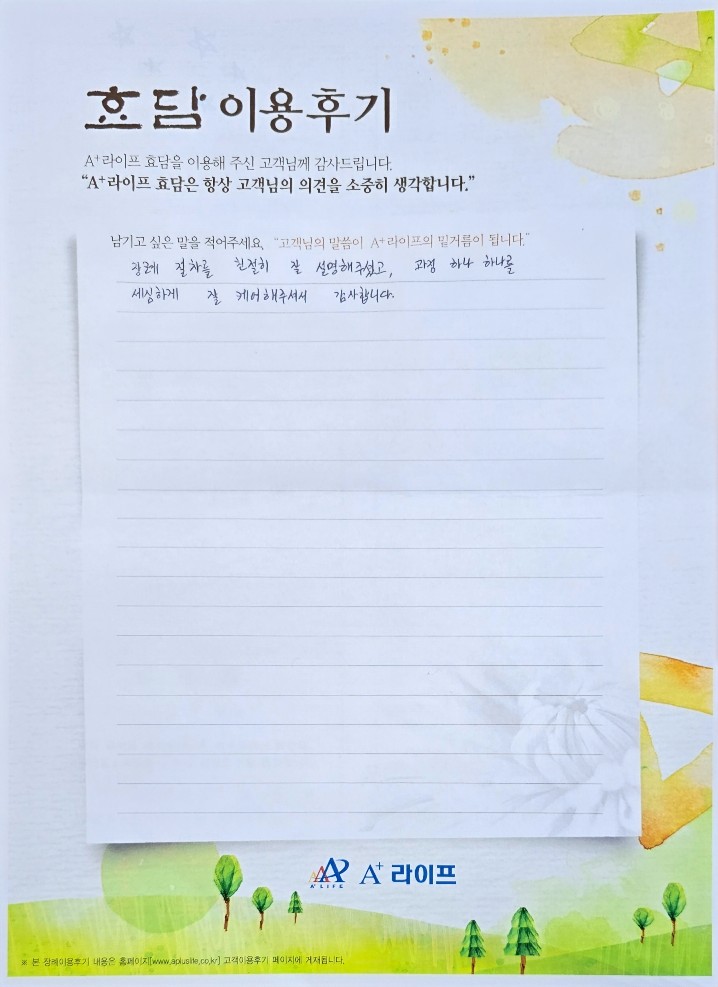 효담 이용후기
A⁺라이프 효담을 이용해 주신 고객님께 감사드립니다.
“A⁺라이프 효담은 항상 고객님의 의견을 소중히 생각합니다.”
남기고 싶은 말을 적어주세요, “고객님의 말씀이 A⁺라이프의 밑거름이 됩니다.”
장례 절차를 친절히 잘 설명해주셨고, 과정 하나 하나를
세심하게 잘 케어해주셔서 감사합니다.
A⁺LIFE A⁺ 라이프
※ 본 장례이용후기 내용은 홈페이지[www.apluslife.co.kr] 고객이용후기 페이지에 게재됩니다.